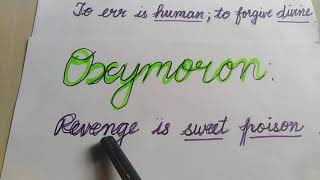 To err is human; to forgive divine
Oxymoron:
Revenge is sweet poison